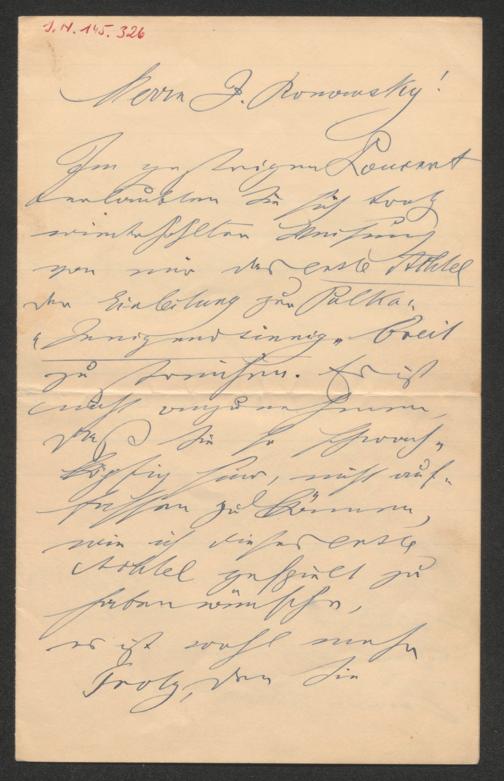 J.N. 145.326
Herrn J. Ronowsky!
Im gestrigen Concert
erlaubten Sie sich trotz
wiederholten Weisung
von mir das erste Achtel
der Einleitung zur Polka:
"Innig und sinnig" breit
zu streichen. Es ist
nicht anzunehmen,
daß Sie so schwach-
köpfig sind, nicht auf-
fassen zu können,
wie ich dieses erste
Achtel gespielt zu
haben wünsche,
es ist wohl mehr
Trotz, den Sie